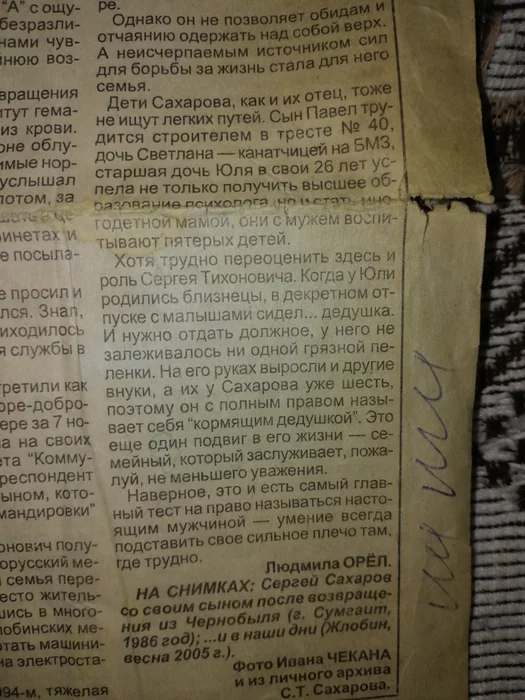 "А" с ощу-
безразли-
нами чув-
нюю воз-
вращения
итут гема-
из крови.
оне облу-
имые нор-
услышал
потом, за
инетах и
е посыла-
е просил и
лся. Знал,
иходилось
я службы в
третили как
оре-добро-
ере за 7 но-
а на своих
ета "Комму-
респондент
ыном, кото-
мандировки"
онович полу-
орусский ме-
семья пере-
есто житель-
ись в много-
лобинских ме-
отать машини-
на электроста-
94-м, тяжелая
ре.
Однако он не позволяет обидам и
отчаянию одержать над собой верх.
А неисчерпаемым источником сил
для борьбы за жизнь стала для него
семья.
Дети Сахарова, как и их отец, тоже
не ищут легких путей. Сын Павел тру-
дится строителем в тресте № 40,
дочь Светлана — канатчицей на БМЗ,
старшая дочь Юля в свои 26 лет ус-
пела не только получить высшее об-
разование психолога, но и стать мно-
годетной мамой, они с мужем воспи-
тывают пятерых детей.
Хотя трудно переоценить здесь и
роль Сергея Тихоновича. Когда у Юли
родились близнецы, в декретном от-
пуске с малышами сидел... дедушка.
И нужно отдать должное, у него не
залеживалось ни одной грязной пе-
ленки. На его руках выросли и другие
внуки, а их у Сахарова уже шесть,
поэтому он с полным правом назы-
вает себя "кормящим дедушкой". Это
еще один подвиг в его жизни — се-
мейный, который заслуживает, пожа-
луй, не меньшего уважения.
Наверное, это и есть самый глав-
ный тест на право называться насто-
ящим мужчиной — умение всегда
подставить свое сильное плечо там,
где трудно.
Людмила ОРЁЛ.
НА СНИМКАХ: Сергей Сахаров
со своим сыном после возвраще-
ния из Чернобыля (г. Сумгаит,
1986 год); ...и в наши дни (Жлобин,
весна 2005 г.).
Фото Ивана ЧЕКАНА
и из личного архива
С.Т. Сахарова.